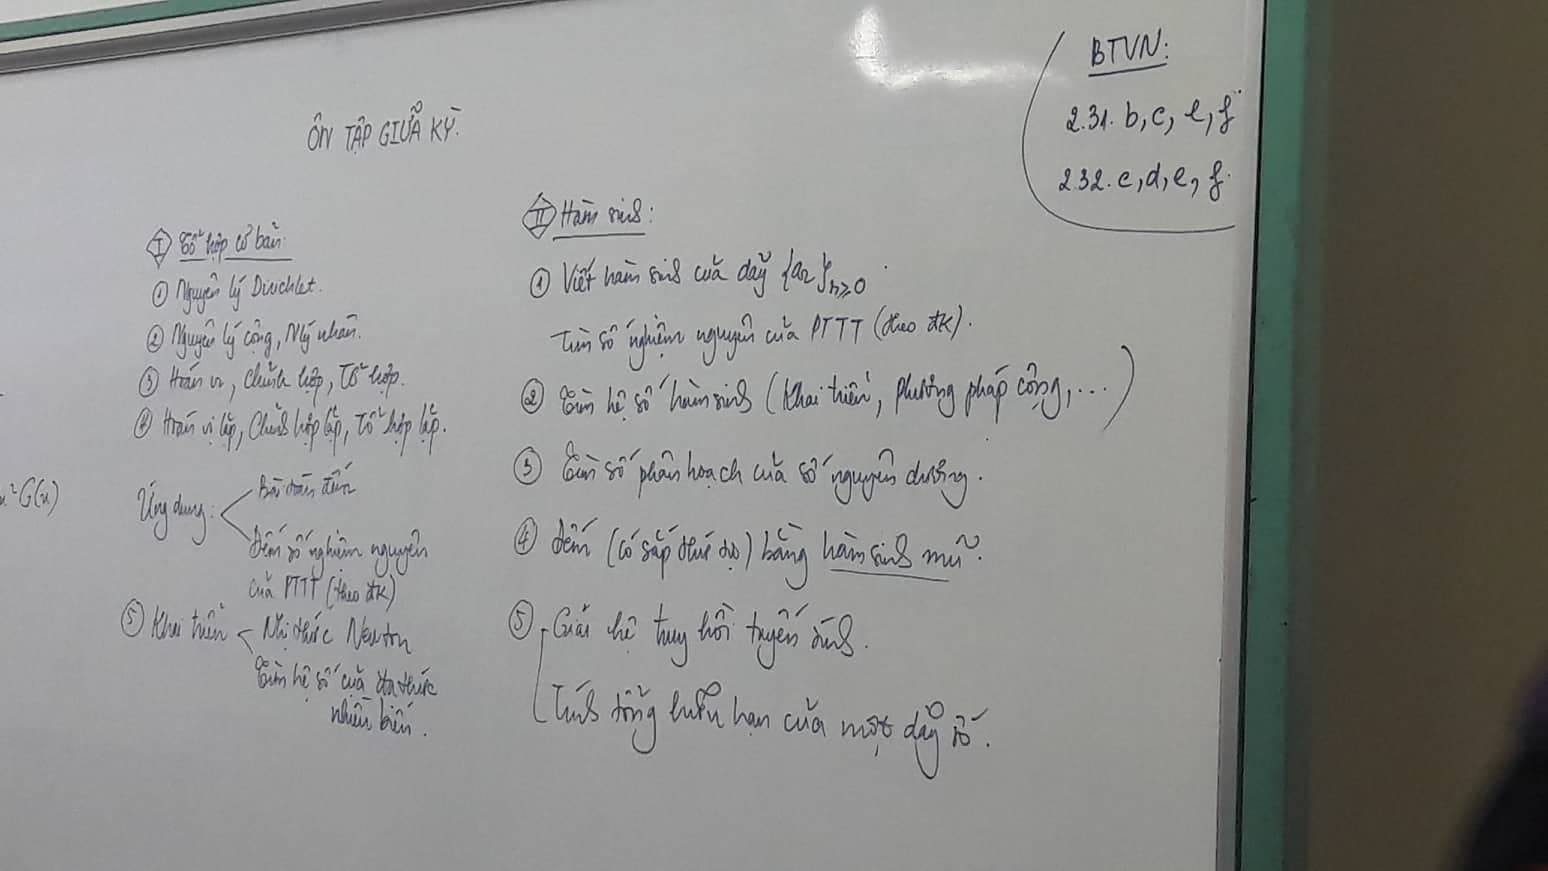 ÔN TẬP GIỮA KỲ.
BTVN:
2.31. b, c, e, f
2.32. c, d, e, f.
I Tổ hợp cơ bản:
① Nguyên lý Dirichlet.
② Nguyên lý cộng, Nlý nhân.
③ Hoán vị, Chỉnh hợp, Tổ hợp.
④ Hoán vị lặp, Chỉnh hợp lặp, Tổ hợp lặp.
Ứng dụng:
Bài toán đếm
Đếm số nghiệm nguyên
của PTTT (theo ĐK)
⑤ Khai triển
Nhị thức Newton
Tìm hệ số của đa thức
nhiều biến.
II Hàm sinh:
① Viết hàm sinh của dãy {a_r}_{n≥0}.
Tìm số nghiệm nguyên của PTTT (theo ĐK).
② Tìm hệ số hàm sinh (Khai triển, phương pháp cộng, ...)
③ Tìm số phân hoạch của số nguyên dương.
④ Đếm (có sắp thứ tự) bằng hàm sinh mũ.
⑤ Giải hệ truy hồi tuyến tính.
Tính tổng hữu hạn của một dãy số.
²G(x)